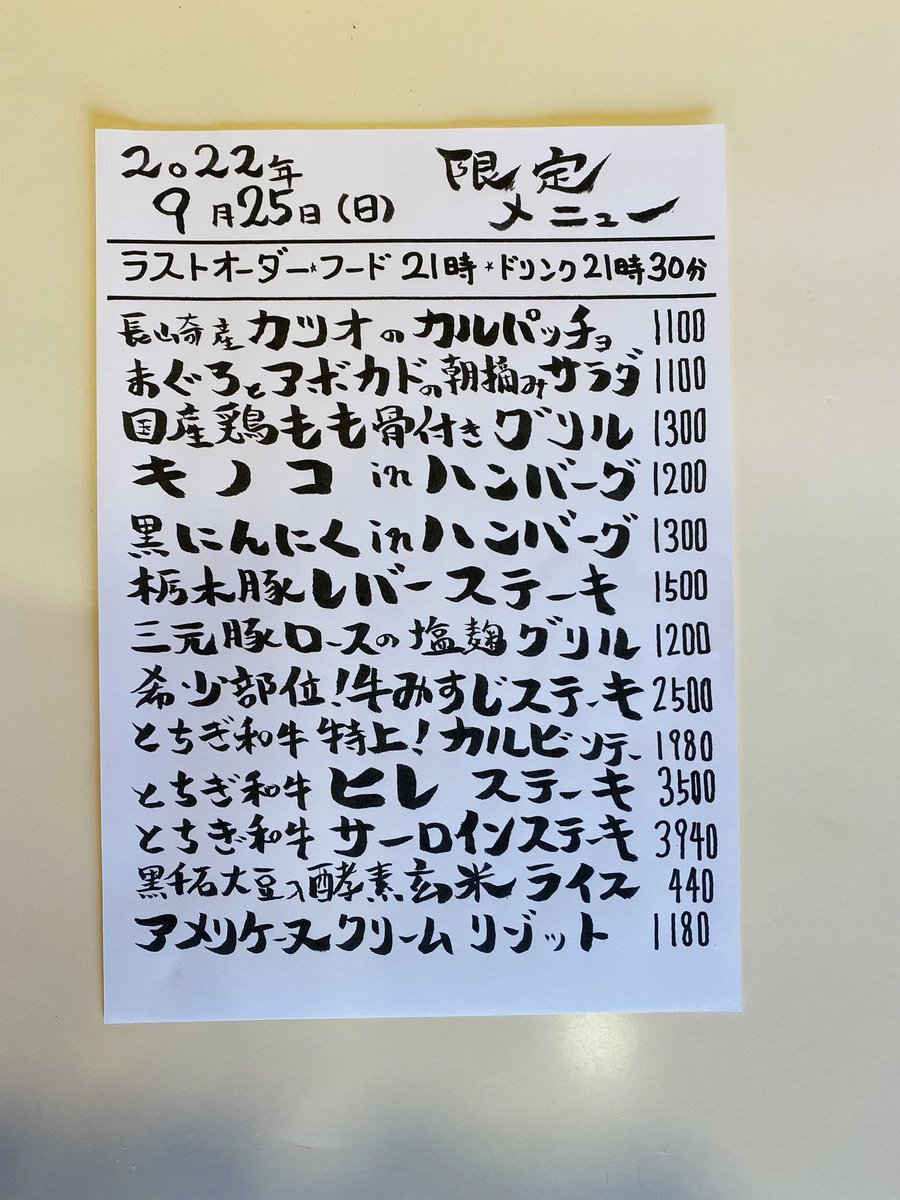 2022年
9月25日(日)
限定
メニュー
ラストオーダー☆フード21時☆ドリンク21時30分
長崎産カツオのカルパッチョ 1100
まぐろとアボカドの朝摘みサラダ 1100
国産鶏もも骨付きグリル 1300
キノコinハンバーグ 1200
黒にんにくinハンバーグ 1300
栃木豚レバーステーキ 1500
三元豚ロースの塩麹グリル 1200
希少部位!牛みすじステーキ 2500
とちぎ和牛特上!カルビソテー 1980
とちぎ和牛ヒレステーキ 3500
とちぎ和牛サーロインステーキ 3940
黒千石大豆入酵素玄米ライス 440
アメリケーヌクリームリゾット 1180